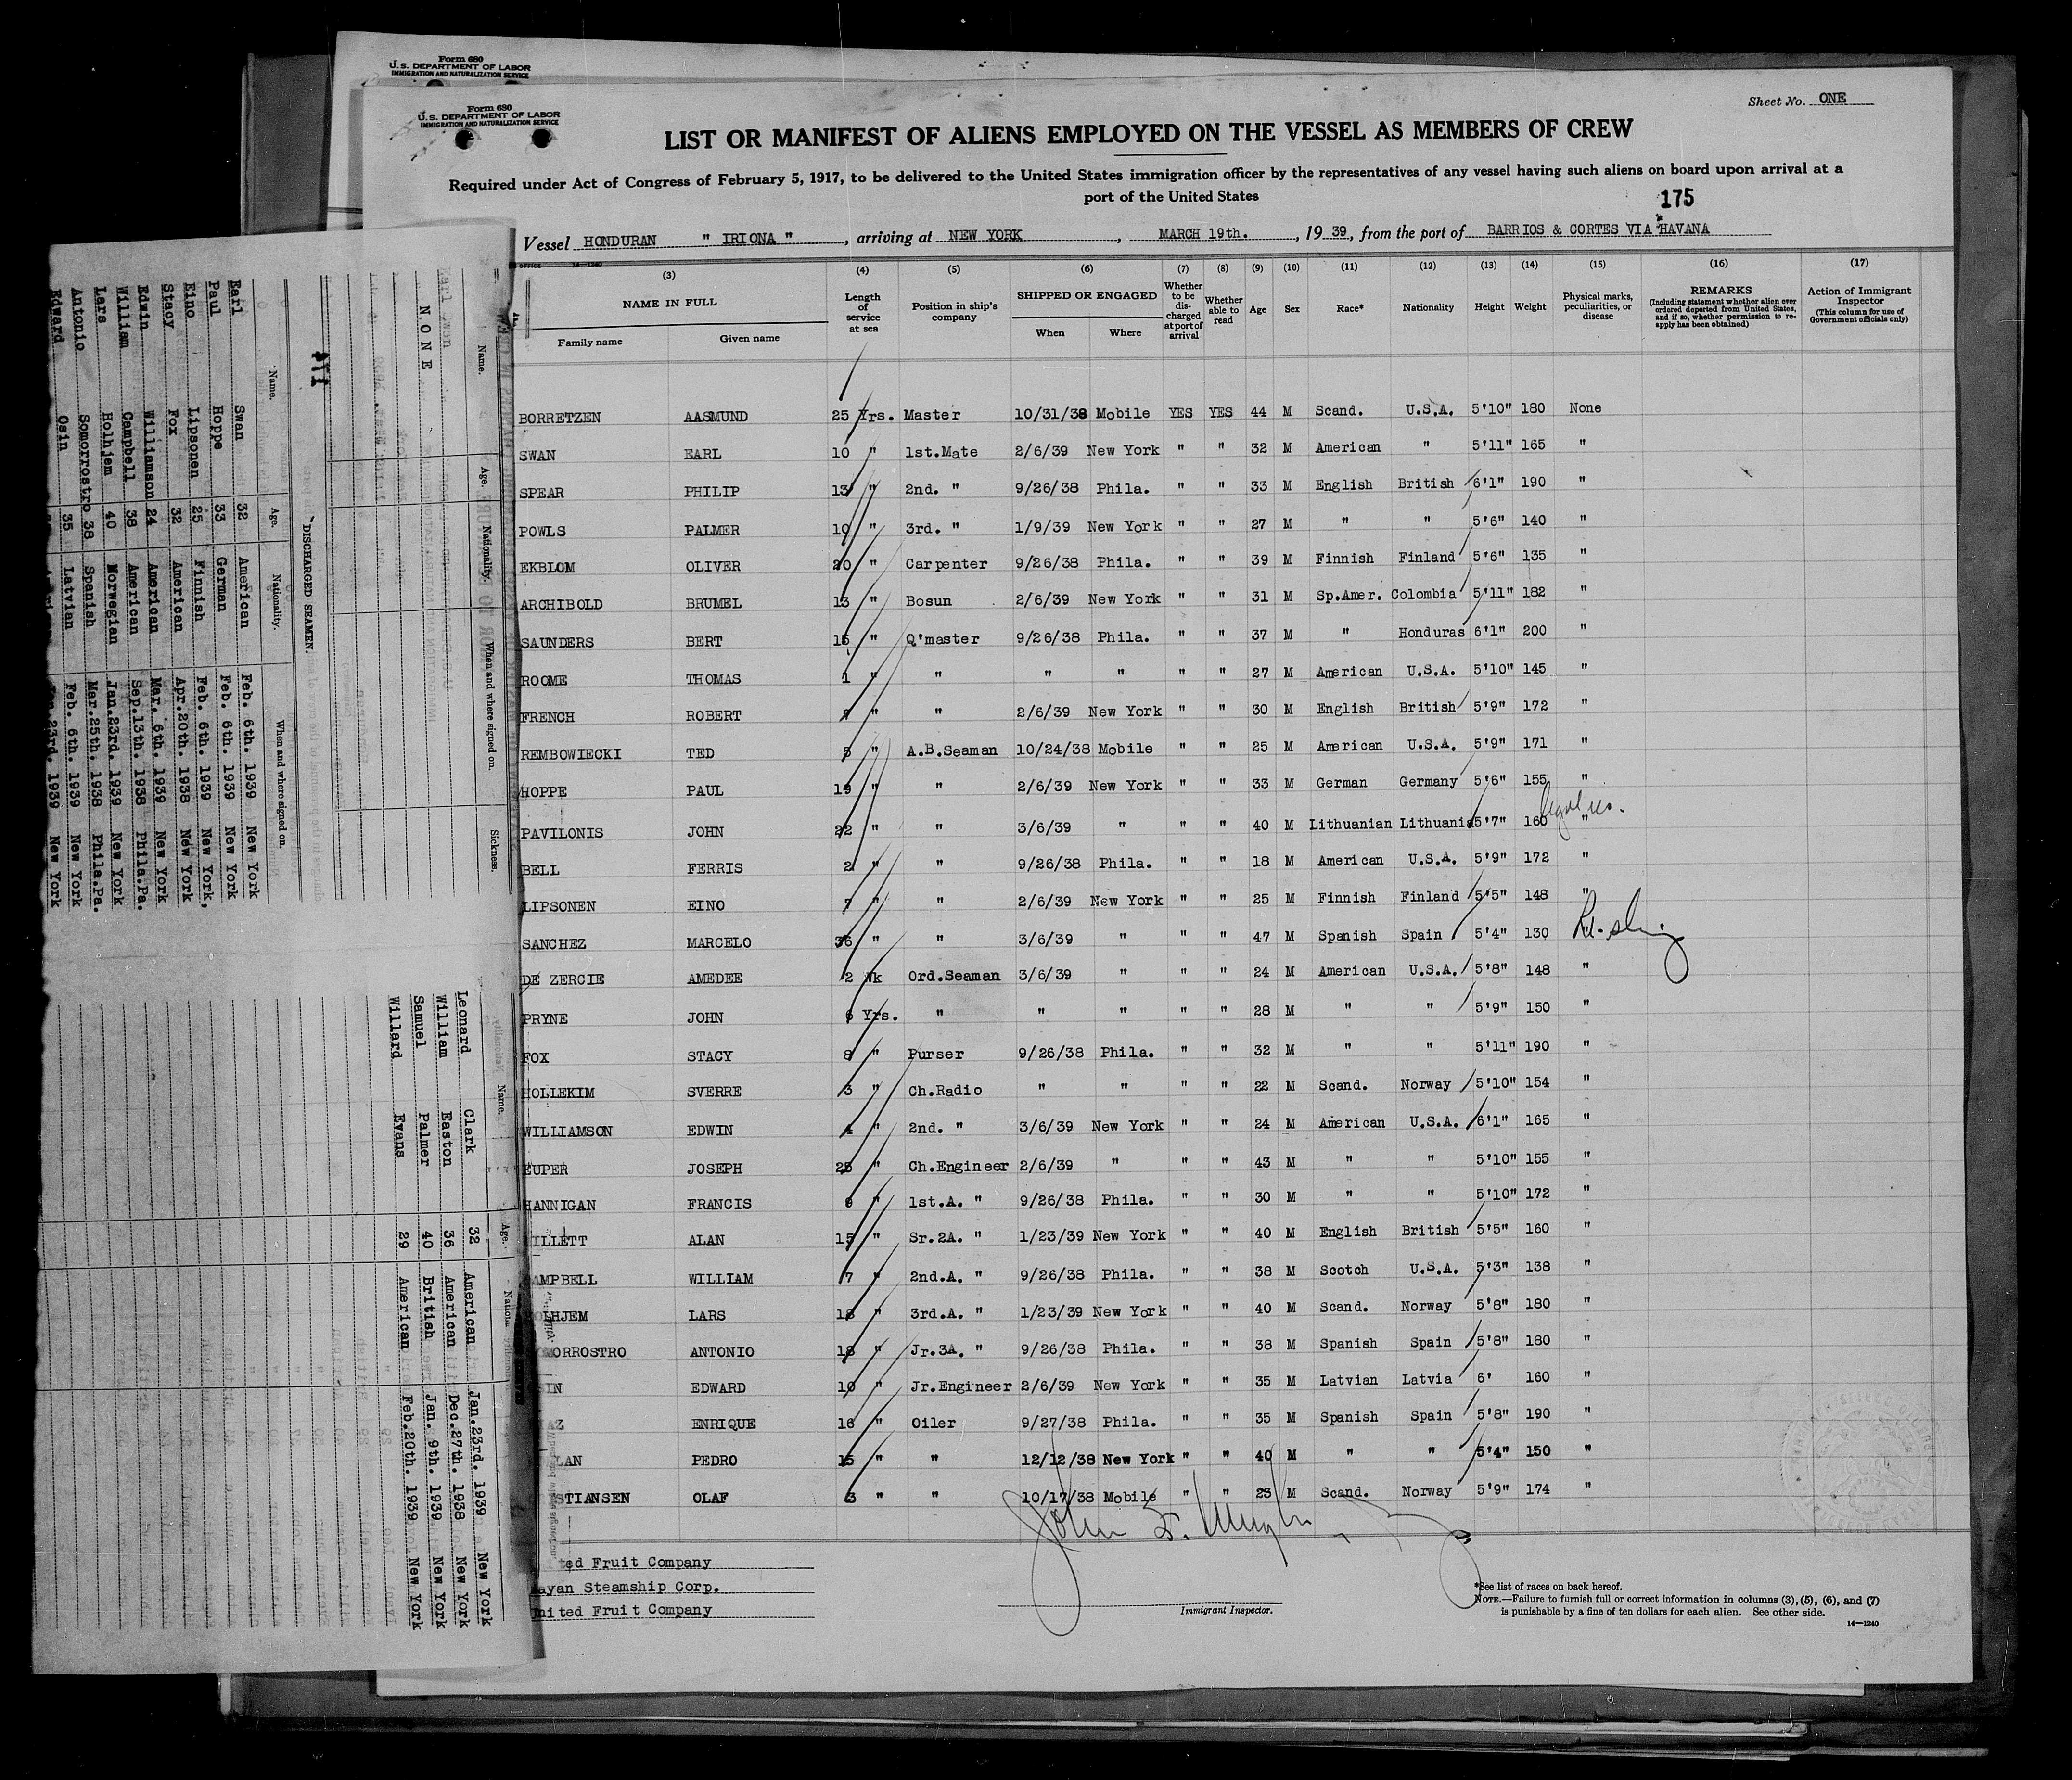 Form 680
U.S. DEPARTMENT OF LABOR
IMMIGRATION AND NATURALIZATION SERVICE
Form 680
U.S. DEPARTMENT OF LABOR
IMMIGRATION AND NATURALIZATION SERVICE
Sheet No. ONE
LIST OR MANIFEST OF ALIENS EMPLOYED ON THE VESSEL AS MEMBERS OF CREW
Required under Act of Congress of February 5, 1917, to be delivered to the United States immigration officer by the representatives of any vessel having such aliens on board upon arrival at a
port of the United States
175
Vessel HONDURAN " IRIONA ", arriving at NEW YORK, MARCH 19th., 1939, from the port of BARRIOS & CORTES VIA HAVANA
(3) (4) (5) (6) (7) (8) (9) (10) (11) (12) (13) (14) (15) (16) (17)
NAME IN FULL Family name Given name Length of service at sea Position in ship's company SHIPPED OR ENGAGED When Where Whether to be discharged at port of arrival Whether able to read Age Sex Race* Nationality Height Weight Physical marks, peculiarities, or disease REMARKS (Including statement whether alien ever ordered deported from United States, and if so, whether permission to reapply has been obtained) Action of Immigrant Inspector (This column for use of Government officials only)
BORRETZEN AASMUND 25 Yrs. Master 10/31/38 Mobile YES YES 44 M Scand. U.S.A. 5'10" 180 None
SWAN EARL 10 " 1st.Mate 2/6/39 New York " " 32 M American " 5'11" 165 "
SPEAR PHILIP 13 " 2nd. " 9/26/38 Phila. " " 33 M English British 6'1" 190 "
POWLS PALMER 10 " 3rd. " 1/9/39 New York " " 27 M " " 5'6" 140 "
EKBLOM OLIVER 20 " Carpenter 9/26/38 Phila. " " 39 M Finnish Finland 5'6" 135 "
ARCHIBOLD BRUMEL 13 " Bosun 2/6/39 New York " " 31 M Sp.Amer. Colombia 5'11" 182 "
SAUNDERS BERT 15 " Q'master 9/26/38 Phila. " " 37 M " Honduras 6'1" 200 "
ROOME THOMAS 1 " " " " " " 27 M American U.S.A. 5'10" 145 "
FRENCH ROBERT 7 " " 2/6/39 New York " " 30 M English British 5'9" 172 "
REMBOWIECKI TED 5 " A.B.Seaman 10/24/38 Mobile " " 25 M American U.S.A. 5'9" 171 "
HOPPE PAUL 19 " " 2/6/39 New York " " 33 M German Germany 5'6" 155 "
PAVILONIS JOHN 22 " " 3/6/39 " " " 40 M Lithuanian Lithuania 5'7" 160 "
BELL FERRIS 2 " " 9/26/38 Phila. " " 18 M American U.S.A. 5'9" 172 "
LIPSONEN EINO 7 " " 2/6/39 New York " " 25 M Finnish Finland 5'5" 148 "
SANCHEZ MARCELO 36 " " 3/6/39 " " " 47 M Spanish Spain 5'4" 130
DE ZERCIE AMEDEE 2 Wk Ord.Seaman 3/6/39 " " " 24 M American U.S.A. 5'8" 148 "
PRYNE JOHN 6 Yrs. " " " " " 28 M " " 5'9" 150 "
FOX STACY 8 " Purser 9/26/38 Phila. " " 32 M " " 5'11" 190 "
HOLLEKIM SVERRE 3 " Ch.Radio " " " " 22 M Scand. Norway 5'10" 154 "
WILLIAMSON EDWIN 4 " 2nd. " 3/6/39 New York " " 24 M American U.S.A. 6'1" 165 "
EUPER JOSEPH 25 " Ch.Engineer 2/6/39 " " " 43 M " " 5'10" 155 "
HANNIGAN FRANCIS 9 " 1st.A. " 9/26/38 Phila. " " 30 M " " 5'10" 172 "
ILLETT ALAN 15 " Sr.2A. " 1/23/39 New York " " 40 M English British 5'5" 160 "
AMPBELL WILLIAM 7 " 2nd.A. " 9/26/38 Phila. " " 38 M Scotch U.S.A. 5'3" 138 "
LHJEM LARS 18 " 3rd.A. " 1/23/39 New York " " 40 M Scand. Norway 5'8" 180 "
MORROSTRO ANTONIO 18 " Jr.3A. " 9/26/38 Phila. " " 38 M Spanish Spain 5'8" 180 "
SIN EDWARD 10 " Jr.Engineer 2/6/39 New York " " 35 M Latvian Latvia 6' 160 "
AZ ENRIQUE 16 " Oiler 9/27/38 Phila. " " 35 M Spanish Spain 5'8" 190 "
LAN PEDRO 15 " " 12/12/38 New York " " 40 M " " 5'4" 150 "
STIANSEN OLAF 3 " " 10/17/38 Mobile " " 23 M Scand. Norway 5'9" 174 "
ted Fruit Company
ayan Steamship Corp.
nited Fruit Company
Immigrant Inspector.
*See list of races on back hereof.
NOTE.—Failure to furnish full or correct information in columns (3), (5), (6), and (7)
is punishable by a fine of ten dollars for each alien. See other side.
14—1240
Name. Age. Nationality. When and where signed on. Sickness.
NONE
174
DISCHARGED SEAMEN.
Name. Age. Nationality. When and where signed on.
Earl Swan 32 American Feb. 6th. 1939 New York
Paul Hoppe 33 German Feb. 6th. 1939 New York
Eino Lipsonen 25 Finnish Feb. 6th. 1939 New York,
Stacy Fox 32 American Apr.20th. 1938 New York
Edwin Williamson 24 American Mar. 6th. 1939 New York
William Campbell 38 American Sep.13th. 1938 Phila.Pa.
Lars Holhjem 40 Norwegian Jan.23rd. 1939 New York
Antonio Somorrostro 38 Spanish Mar.25th. 1938 Phila.Pa.
Edward Osin 35 Latvian Feb. 6th. 1939 New York
23rd. 1939 New York
Name. Age.
Leonard Clark 32 American Jan.23rd. 1939 New York
William Easton 36 American Dec.27th. 1938 New York
Samuel Palmer 40 British Jan. 9th. 1939 New York
Willard Evans 29 American Feb.20th. 1939 New York